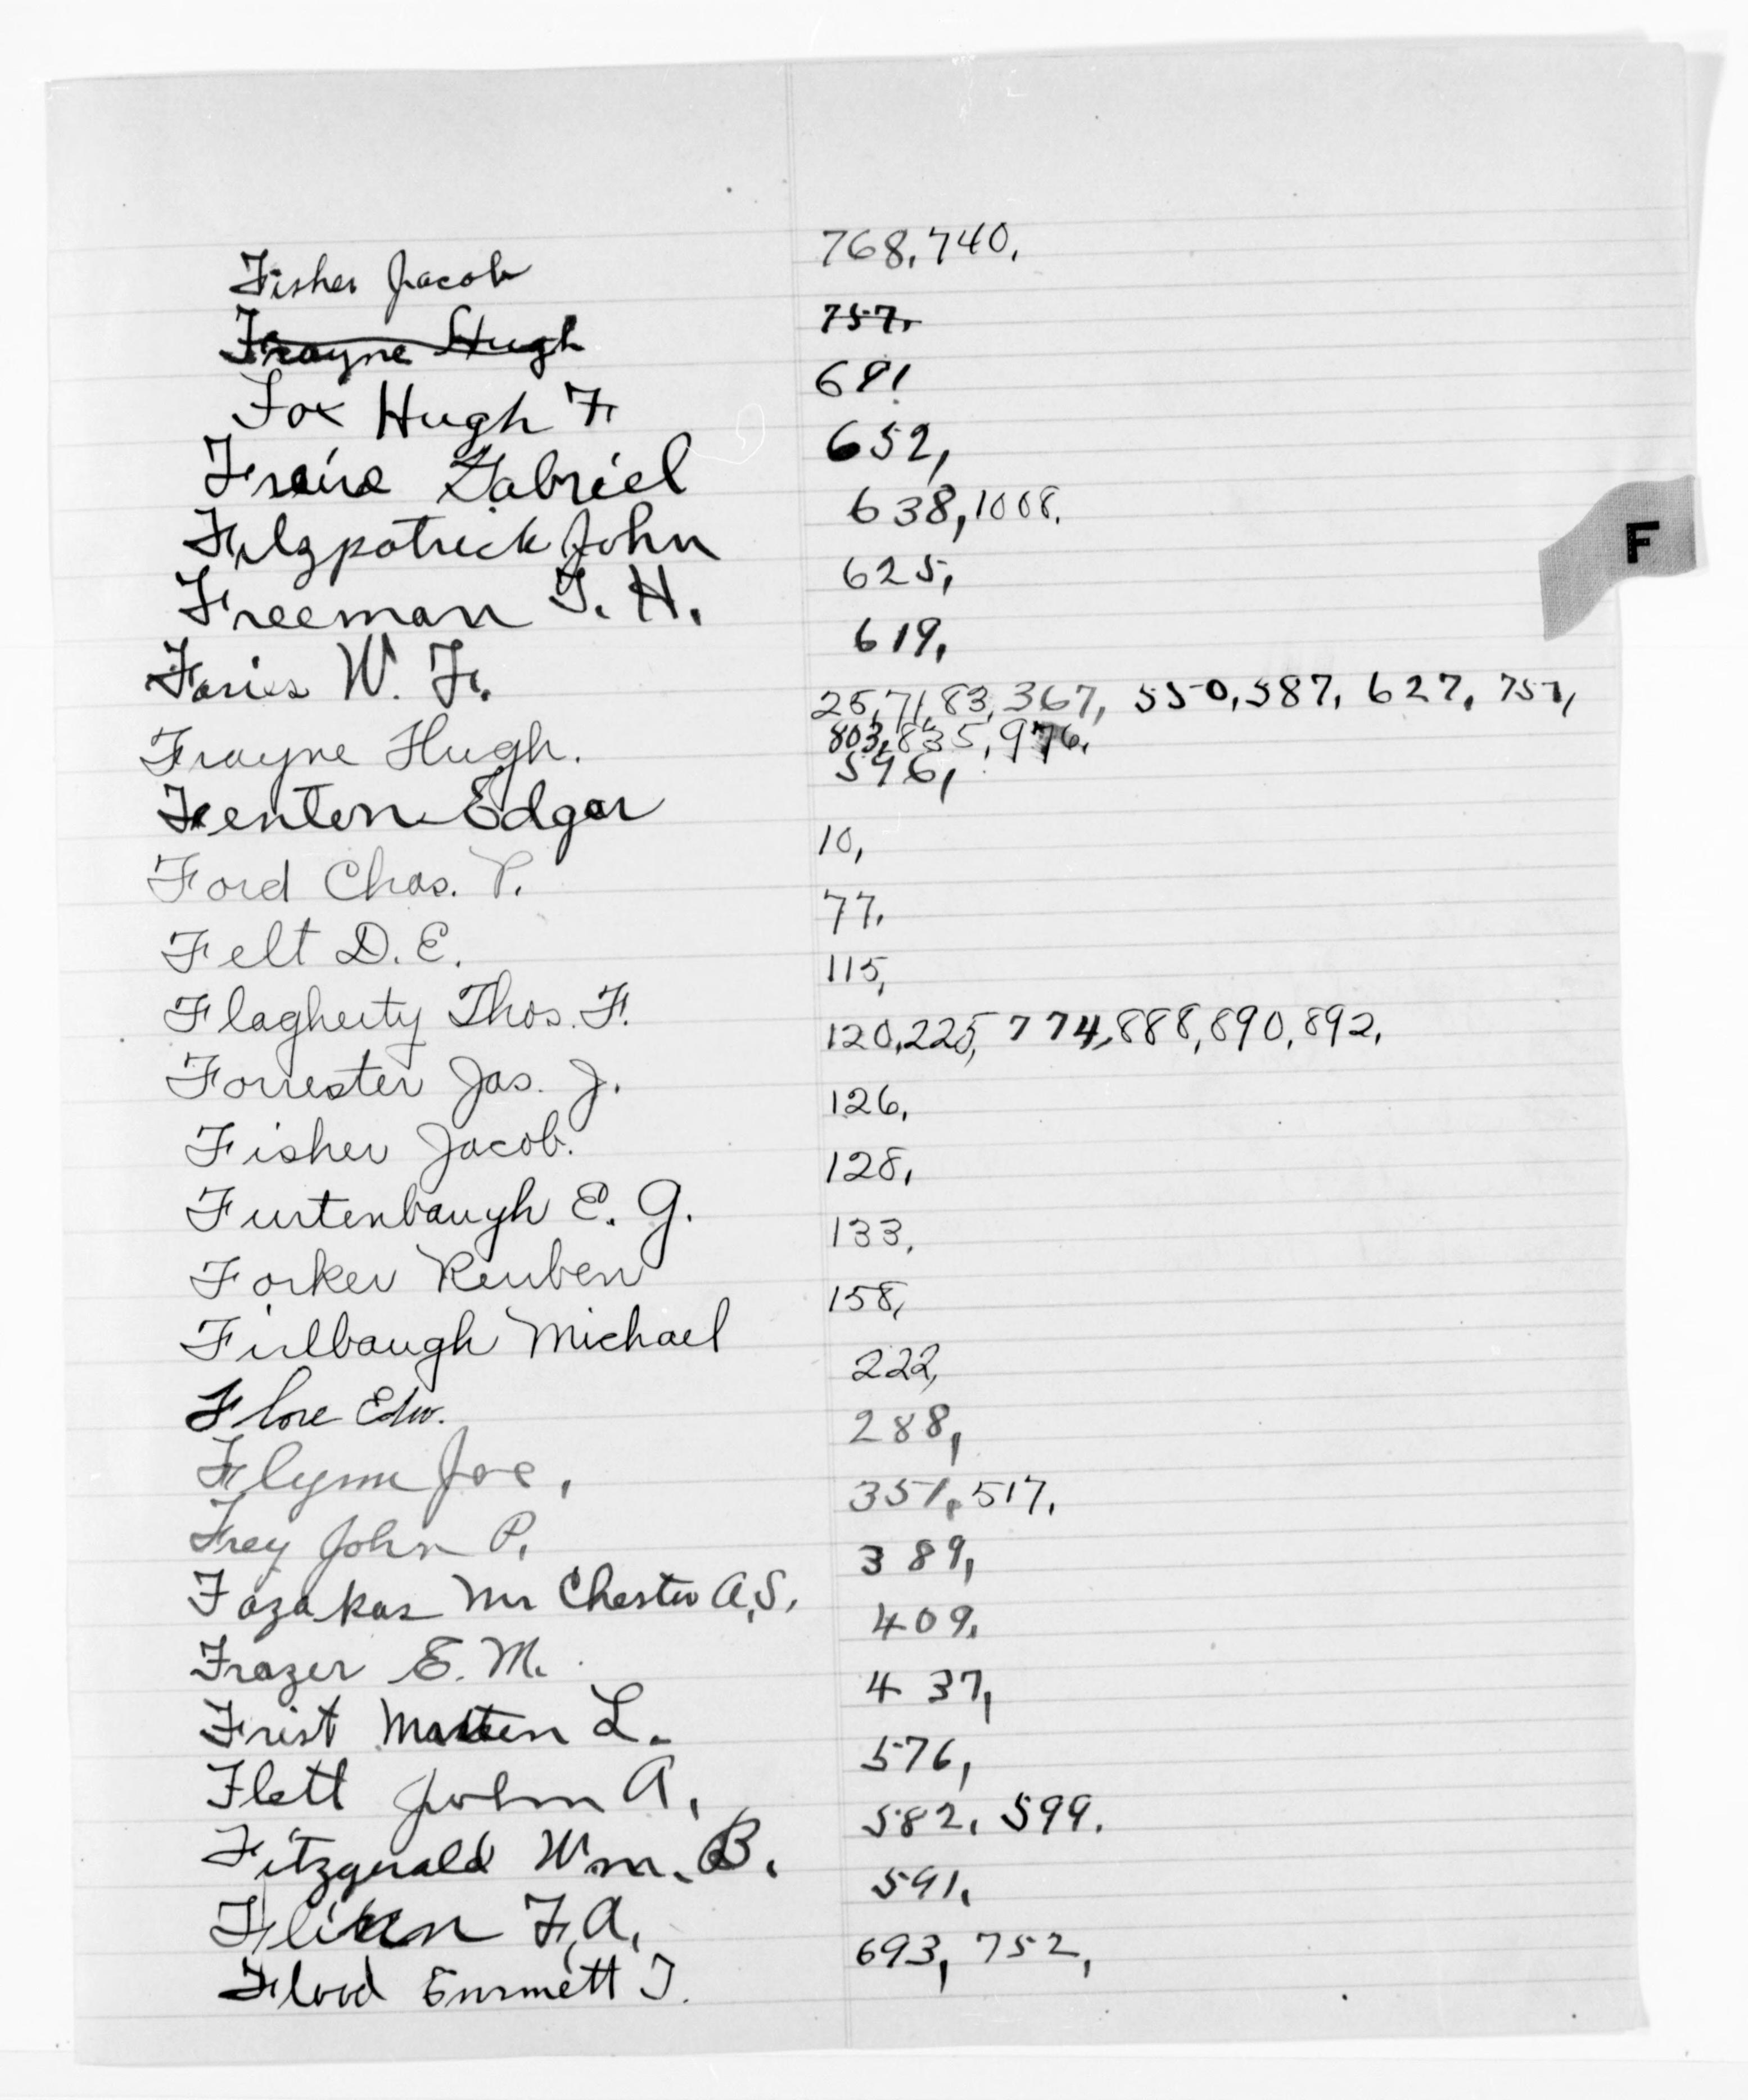 Fisher Jacob 768, 740,
Frayne Hugh 757,
Fox Hugh F 691
Freire Gabriel 652,
Fitzpatrick John 638, 1008,
Freeman T. H. 625,
Faries W. F. 619,
Frayne Hugh. 25, 71, 83, 367, 550, 587, 627, 757,
803, 835, 976,
Fenton Edgar 596,
Ford Chas. P. 10,
Felt D. E. 77,
Flagherty Thos. F. 115,
Forrester Jas. J. 120, 225, 774, 888, 890, 892,
Fisher Jacob. 126,
Furtenbaugh E. G. 128,
Forker Reuben 133,
Firlbaugh Michael 158,
Flore Edw. 222,
Flynn Joe, 288,
Frey John P. 351, 517,
Fazakas Mr Chester A. S. 389,
Frazer E. M. 409,
Frist L. 437,
Flett John A, 576,
Fitzgerald Wm. B. 582, 599,
F. A. 591,
Flood Emmett T. 693, 752,
F